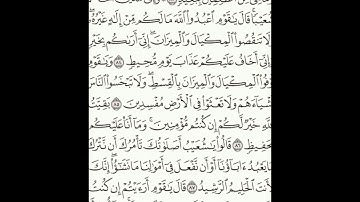 شُعَيْبًا قَالَ يَٰقَوْمِ ٱعْبُدُوا۟ ٱللَّهَ مَا لَكُم مِّنْ إِلَٰهٍ غَيْرُهُۥ
وَلَا تَنقُصُوا۟ ٱلْمِكْيَالَ وَٱلْمِيزَانَ إِنِّىٓ أَرَىٰكُم بِخَيْرٍ
وَإِنِّىٓ أَخَافُ عَلَيْكُمْ عَذَابَ يَوْمٍ مُّحِيطٍ ٨٤ وَيَٰقَوْمِ
أَوْفُوا۟ ٱلْمِكْيَالَ وَٱلْمِيزَانَ بِٱلْقِسْطِ وَلَا تَبْخَسُوا۟ ٱلنَّاسَ
أَشْيَآءَهُمْ وَلَا تَعْثَوْا۟ فِى ٱلْأَرْضِ مُفْسِدِينَ ٨٥ بَقِيَّتُ
ٱللَّهِ خَيْرٌ لَّكُمْ إِن كُنتُم مُّؤْمِنِينَ وَمَآ أَنَا۠ عَلَيْكُم
بِحَفِيظٍ ٨٦ قَالُوا۟ يَٰشُعَيْبُ أَصَلَوٰتُكَ تَأْمُرُكَ أَن نَّتْرُكَ
مَا يَعْبُدُ ءَابَآؤُنَآ أَوْ أَن نَّفْعَلَ فِىٓ أَمْوَٰلِنَا مَا نَشَٰٓؤُا۟ إِنَّكَ
لَأَنتَ ٱلْحَلِيمُ ٱلرَّشِيدُ ٨٧ قَالَ يَٰقَوْمِ أَرَءَيْتُمْ إِن كُنتُ